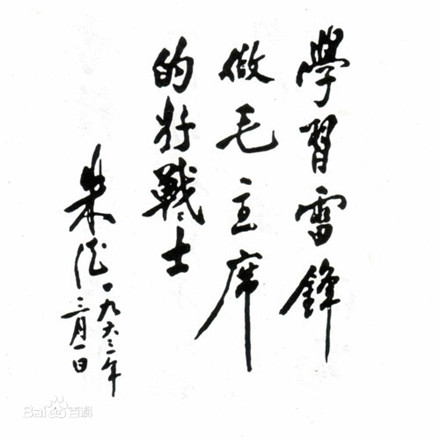 學習雷鋒
做毛主席
的好戰士
朱德
一九六三年
二月一日
Bai百科